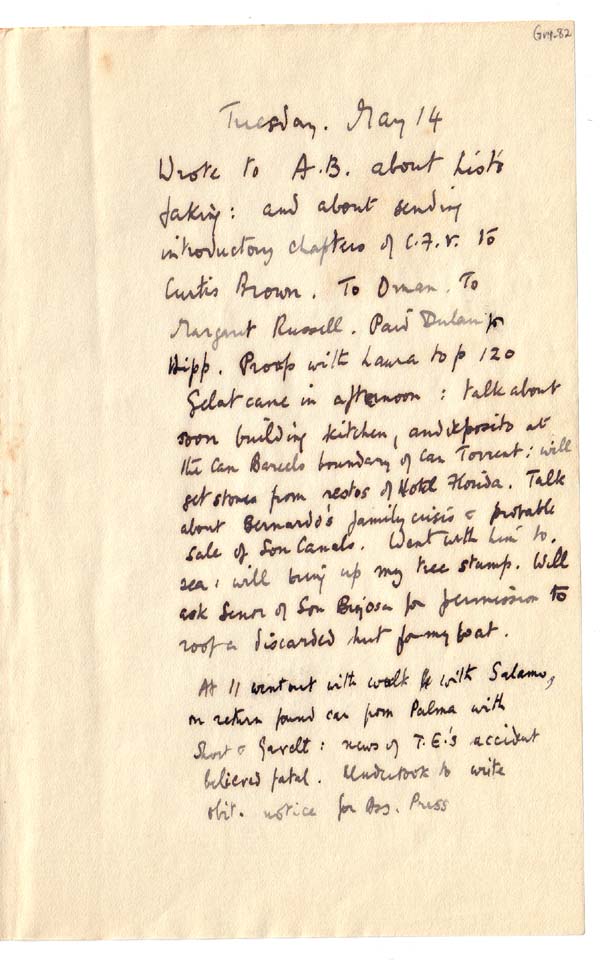 Grv-82
Tuesday. May 14
Wrote to A.B. about lists
faking: and about sending
introductory chapters of C.F.V. to
Curtis Brown. To Oman. To
Margaret Russell. Paid Dulau for
Hipp. Proofs with Laura to p 120
Gelat came in afternoon: talk about
soon building kitchen, and deposito at
the Can Barcelo boundary of Can Torrent: will
get stones from restos of Hotel Florida. Talk
about Bernardo's family crisis & probable
sale of Son Canals. Went with him to
sea: will bring up my tree stump. Will
ask Senor of Son Bujosa for permission to
roof a discarded hut for my boat.
At 11 went out with walk with Salamo,
on return found car from Palma with
Short & : news of T.E.'s accident
believed fatal. Undertook to write
obit. notice for Ass. Press